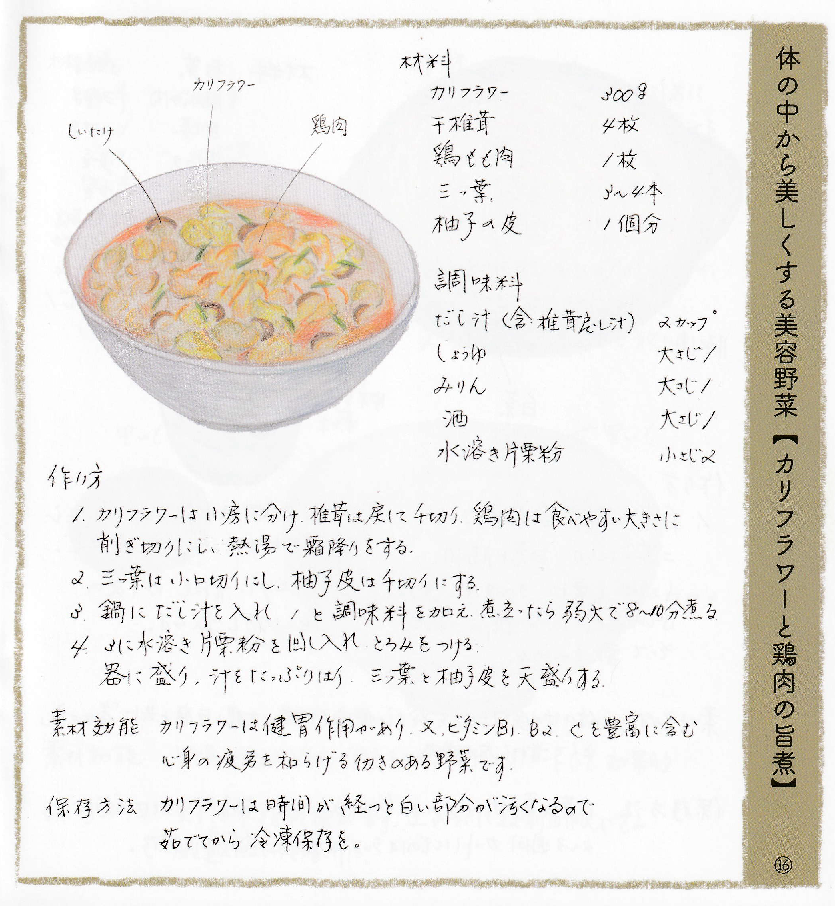 体の中から美しくする美容野菜【カリフラワーと鶏肉の旨煮】
⑯
カリフラワー
しいたけ
鶏肉
材料
カリフラワー 300g
干椎茸 4枚
鶏もも肉 1枚
三ッ葉 3〜4本
柚子の皮 1個分
調味料
だし汁(含・椎茸戻し汁) 2カップ
しょうゆ 大さじ1
みりん 大さじ1
酒 大さじ1
水溶き片栗粉 小さじ2
作り方
1. カリフラワーは小房に分け、椎茸は戻して千切り、鶏肉は食べやすい大きさに
削ぎ切りにし、熱湯で霜降りをする。
2. 三ッ葉は小口切りにし、柚子皮は千切りにする。
3. 鍋にだし汁を入れ 1と調味料を加え、煮立ったら弱火で8〜10分煮る
4. 3に水溶き片栗粉を回し入れ とろみをつける。
器に盛り、汁をたっぷりはり、三ッ葉と柚子皮を天盛りする。
素材効能 カリフラワーは健胃作用があり、又、ビタミンB1、B2、Cを豊富に含む
心身の疲労を和らげる働きのある野菜です。
保存方法 カリフラワーは時間が経つと白い部分が汚くなるので
茹でてから冷凍保存を。